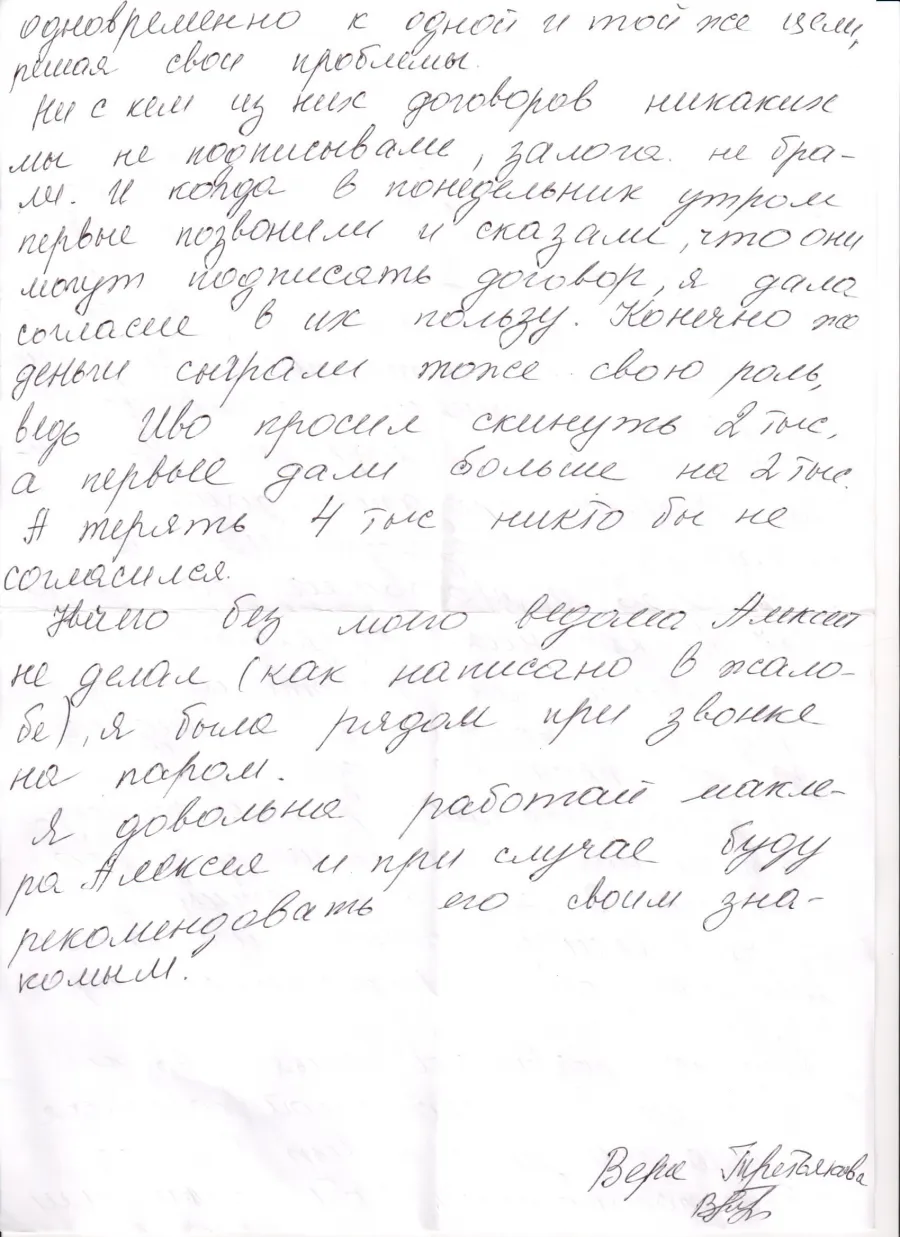 одновременно к одной и той же цели,
решая свои проблемы.
Ни с кем из них договоров никаких
мы не подписывали, залога не бра-
ли. И когда в понедельник утром
первые позвонили и сказали, что они
могут подписать договор, я дала
согласие в их пользу. Конечно же
деньги сыграли тоже свою роль,
ведь Иво просил скинуть 2 тыс,
а первые дали больше на 2 тыс.
А терять 4 тыс никто бы не
согласился.
Ничего без моего ведома Алексей
не делал (как написано в жало-
бе), я была рядом при звонке
на паром.
Я довольна работай макле-
ра Алексея и при случае буду
рекомендовать его своим зна-
комым.
Вера Третьякова